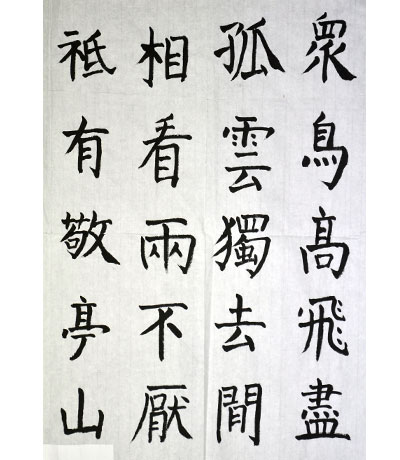 眾鳥髙飛盡
孤雲獨去閒
相看兩不厭
祗有敬亭山